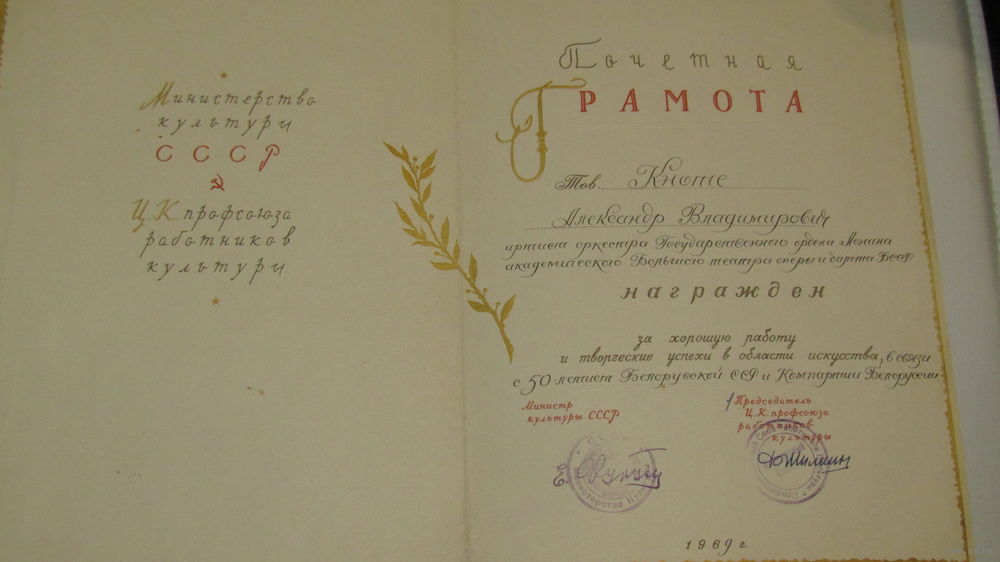 Министерство
культуры
СССР
Ц.К. профсоюза
работников
культуры
Почетная
ГРАМОТА
Тов. Кноте
Александр Владимирович
артист оркестра Государственного ордена Ленина
академического Большого театра оперы и балета БССР
награжден
за хорошую работу
и творческие успехи в области искусства, в связи
с 50-летием Белорусской ССР и Компартии Белоруссии.
Министр
культуры СССР
Председатель
Ц.К. профсоюза
работников
культуры
СССР
Министерство
1969 г.